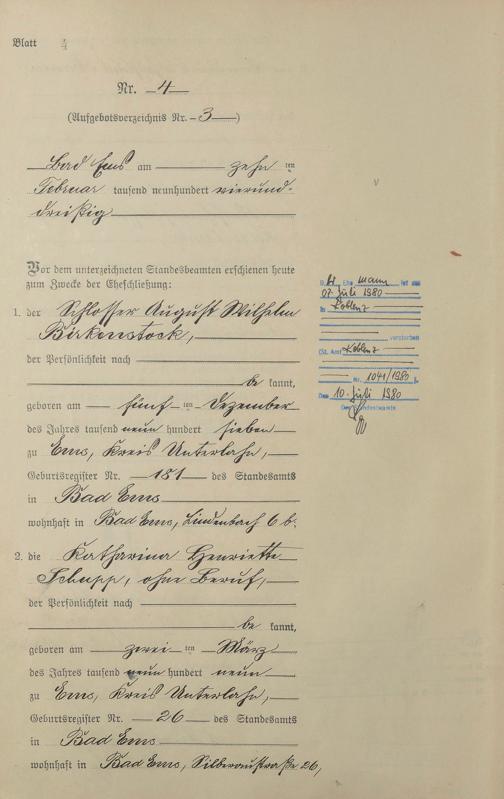 Blatt 4
Nr. 4
(Aufgebotsverzeichnis Nr. 3)
Bad Ems am zehn ten
Februar tausend neunhundert vierund-
dreißig
Vor dem unterzeichneten Standesbeamten erschienen heute
zum Zwecke der Eheschließung:
1. der Schlosser August Wilhelm
Birkenstock,
der Persönlichkeit nach
be kannt,
geboren am fünf ten Dezember
des Jahres tausend neun hundert sieben
zu Ems, Kreis Unterlahn,
Geburtsregister Nr. 181 des Standesamts
in Bad Ems
wohnhaft in Bad Ems, Lindenbach 6 b.
2. die Katharina Henriette
Schupp, ohne Beruf,
der Persönlichkeit nach
be kannt,
geboren am zwei ten März
des Jahres tausend neun hundert neun
zu Ems, Kreis Unterlahn,
Geburtsregister Nr. 26 des Standesamts
in Bad Ems
wohnhaft in Bad Ems, Silberaustraße 26,
Der Ehemann ist am
07. Juli 1980
in Koblenz
verstorben
(St. Amt Koblenz
Nr. 1041/1980 ).
Den 10. Juli 1980
Der Standesbeamte